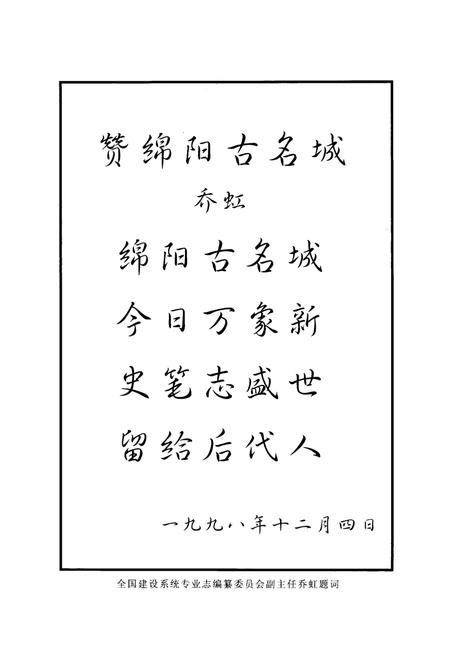 赞绵阳古名城
乔虹
绵阳古名城
今日万象新
史笔志盛世
留给后代人
一九九八年十二月四日
全国建设系统专业志编纂委员会副主任乔虹题词